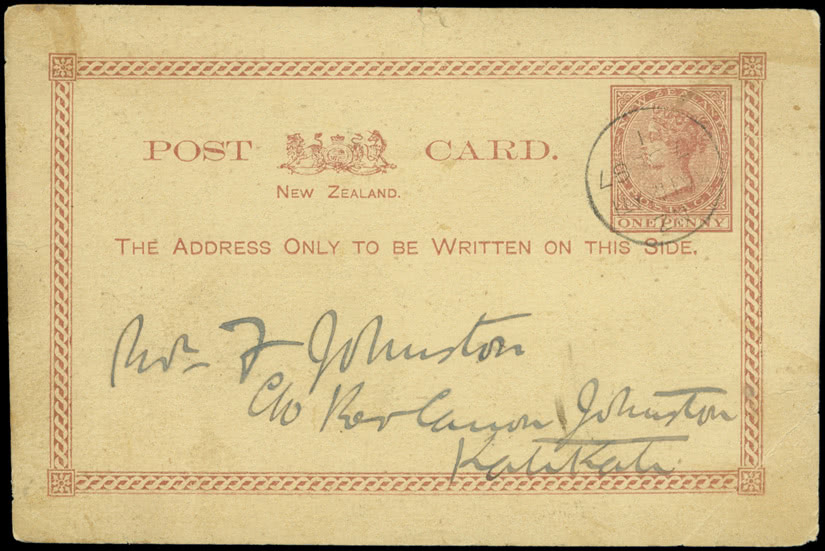 POST CARD.
NEW ZEALAND.
NEW ZEALAND
POSTAGE
ONE PENNY
THE ADDRESS ONLY TO BE WRITTEN ON THIS SIDE.
Mr F Johnston
C/o Rev Canon Johnston
Katikati